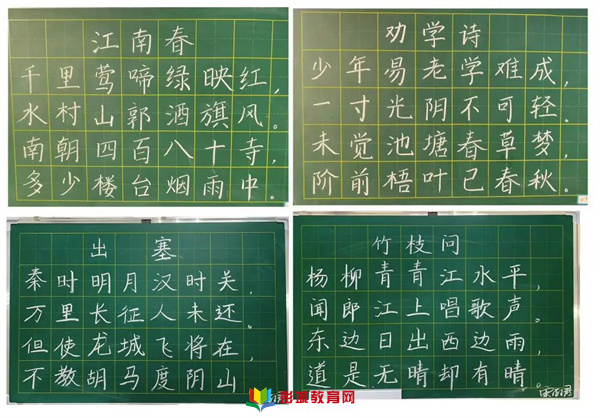 江南春
千里莺啼绿映红，
水村山郭酒旗风。
南朝四百八十寺，
多少楼台烟雨中。
劝学诗
少年易老学难成，
一寸光阴不可轻。
未觉池塘春草梦，
阶前梧叶已春秋。
出塞
秦时明月汉时关，
万里长征人未还。
但使龙城飞将在，
不教胡马度阴山
竹枝问
杨柳青青江水平，
闻郎江上唱歌声。
东边日出西边雨，
道是无晴却有晴
教育网